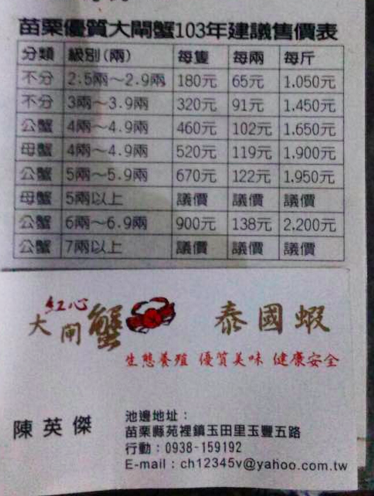 苗栗優質大閘蟹103年建議售價表
分類 級別(兩) 每隻 每兩 每斤
不分 2.5兩～2.9兩 180元 65元 1.050元
不分 3兩～3.9兩 320元 91元 1.450元
公蟹 4兩～4.9兩 460元 102元 1.650元
母蟹 4兩～4.9兩 520元 119元 1.900元
公蟹 5兩～5.9兩 670元 122元 1.950元
母蟹 5兩以上 議價 議價 議價
公蟹 6兩～6.9兩 900元 138元 2.200元
公蟹 7兩以上 議價 議價 議價
紅心
大閘蟹 泰國蝦
生態養殖 優質美味 健康安全
陳英傑
池邊地址：
苗栗縣苑裡鎮玉田里玉豐五路
行動：0938-159192
E-mail：ch12345v@yahoo.com.tw